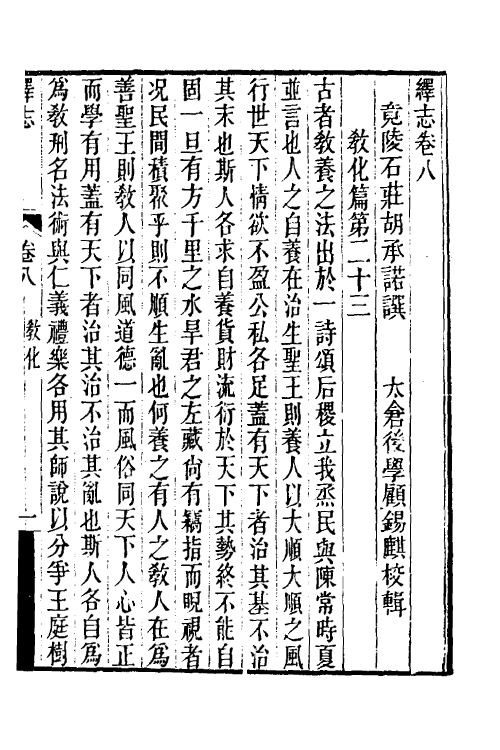 繹志卷八
竟陵石莊胡承諾譔　太倉後學顧錫麒校輯
教化篇第二十三
古者教養之法出於一詩頌后稷立我烝民與陳常時夏
並言也人之自養在治生聖王則養人以大順大順之風
行世天下情欲不盈公私各足蓋有天下者治其基不治
其末也斯人各求自養貨財流衍於天下其勢終不能自
固一旦有方千里之水旱君之左藏尙有竊指而睨視者
况民間積聚乎則不順生亂也何養之有人之教人在爲
善聖王則教人以同風道德一而風俗同天下人心皆正
而學有用蓋有天下者治其治不治其亂也斯人各自爲
爲教刑名法術與仁義禮樂各用其師說以分爭王庭樹
繹志　卷八　教化　一